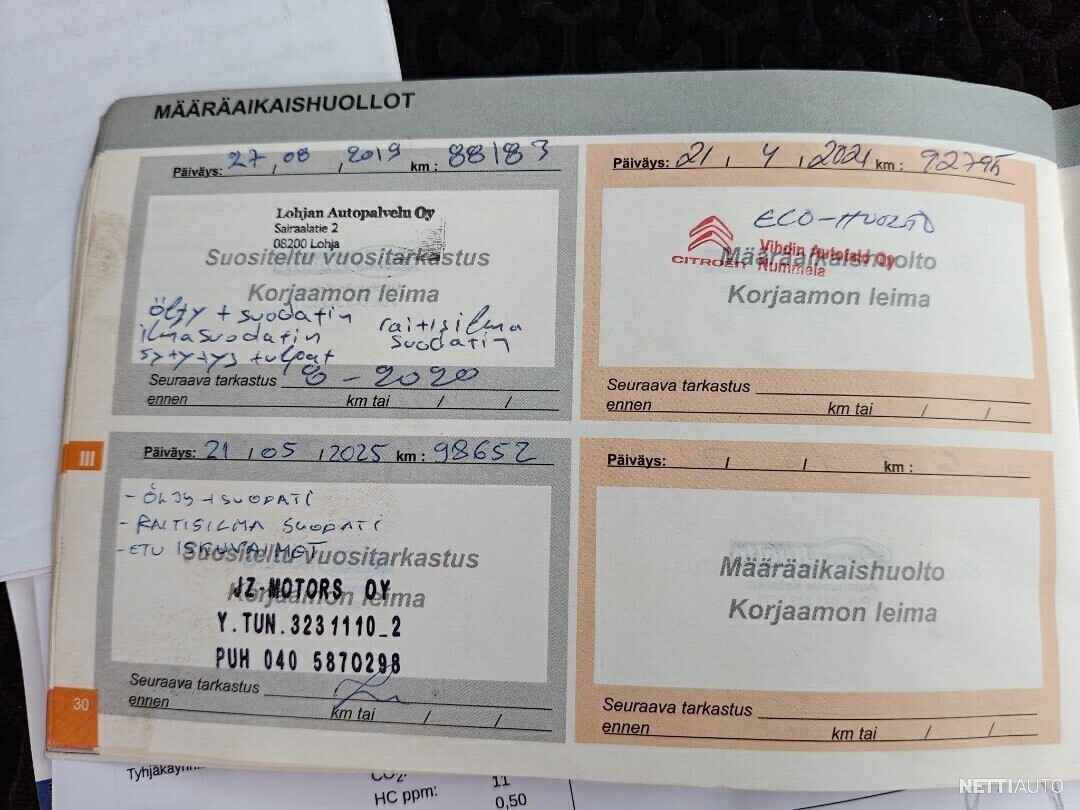 MÄÄRÄAIKAISHUOLLOT
Päiväys: 27 , 08 , 2019 km : 88183
Lohjan Autopalvelu Oy
Sairaalatie 2
08200 Lohja
Suositeltu vuositarkastus
Korjaamon leima
öljy + suodatin
ilmasuodatin
sytytystulpat
raitisilma
suodatin
Seuraava tarkastus 8 - 2020
ennen km tai / /
Päiväys: 21 , 4 , 2021 km : 92795
ECO-HUOLTO
CITROËN
Vihdin Autotalo Oy
Nummela
Määräaikaishuolto
Korjaamon leima
Seuraava tarkastus
ennen km tai / /
III
Päiväys: 21 / 05 / 2025 km : 98652
- ÖLJY + SUODATI
- RAITISILMA SUODATI
- ETU ISKUVAIMET
Suositeltu vuositarkastus
Korjaamon leima
JZ-MOTORS OY
Y.TUN.3231110_2
PUH 040 5870298
Seuraava tarkastus
ennen km tai / /
Päiväys: / / km :
Määräaikaishuolto
Korjaamon leima
Seuraava tarkastus
ennen km tai / /
30
CO2:
11
HC ppm:
0,50
NETTIAUTO